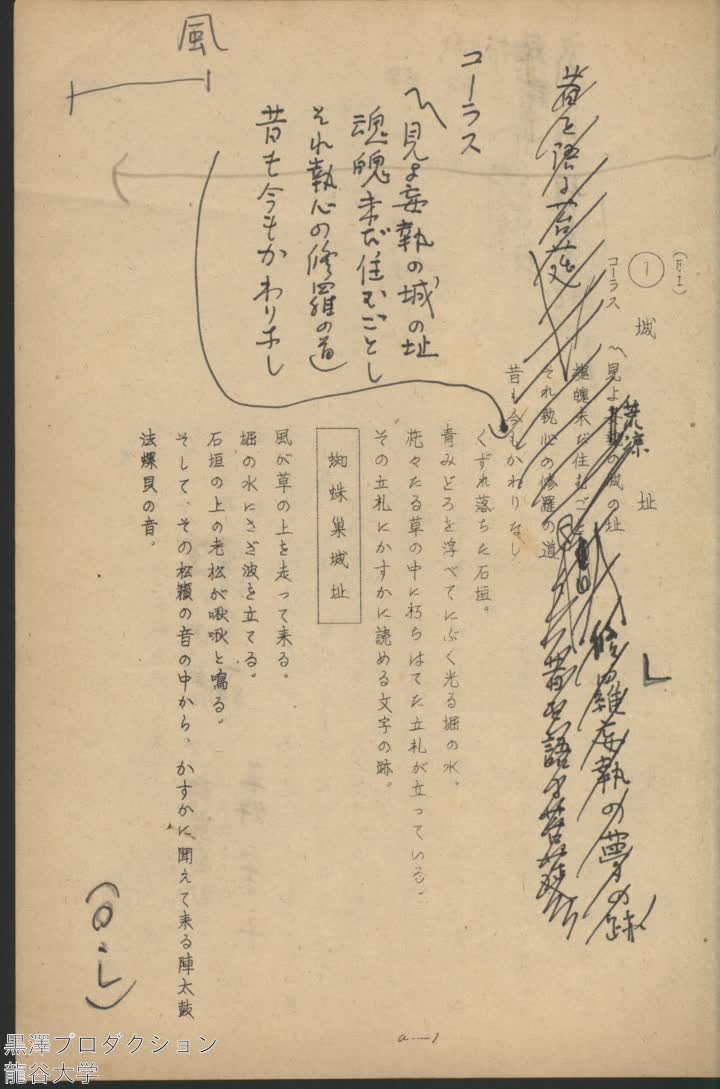 (F・I)
① 城址
コーラス
〽見よ妄執の城の址
魂魄未だ住むごとし
それ執心の修羅の道
昔も今もかわりなし
荒涼
修羅妄執の夢の跡
昔を語る
昔を語る
コーラス
〽見よ妄執の城の址
魂魄未だ住むごとし
それ執心の修羅の道
昔も今もかわりなし
風
くずれ落ちた石垣。
青みどろを浮べてにぶく光る堀の水。
茫々たる草の中に朽ちはてた立札が立っている。
その立札にかすかに読める文字の跡。
蜘蛛巣城址
風が草の上を走って来る。
堀の水にさざ波を立てる。
石垣の上の老松が啾啾と鳴る。
そして、その松籟の音の中から、かすかに聞えて来る陣太鼓
法螺貝の音。
(O・L)
a—1
黒澤プロダクション
龍谷大学